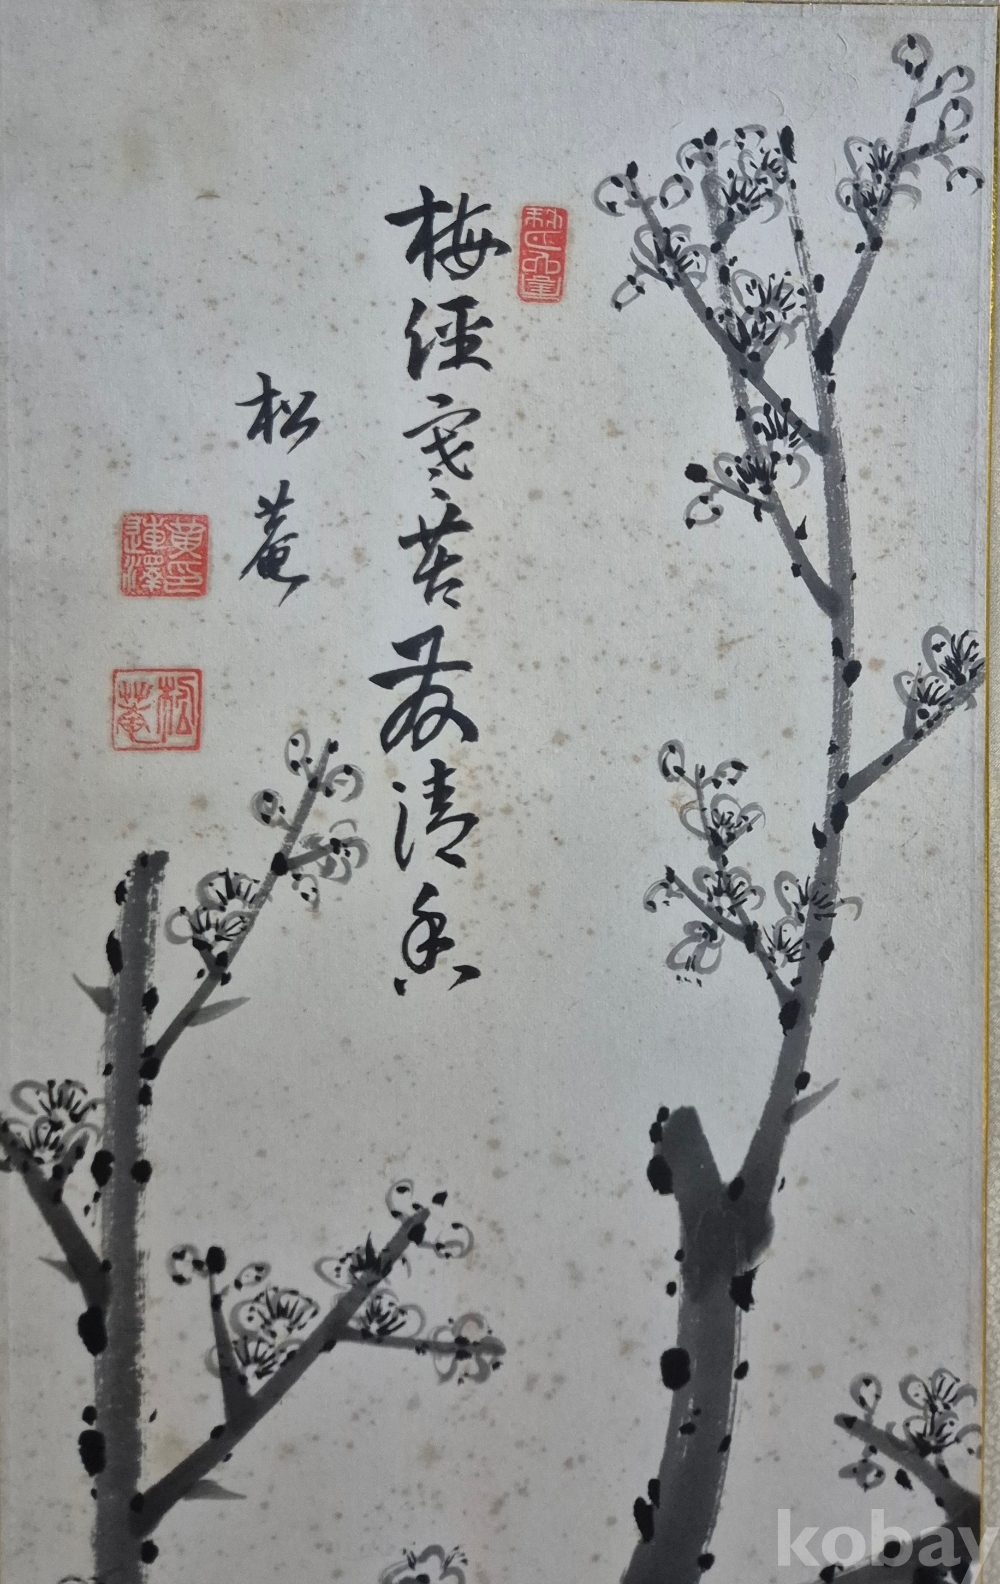 梅經寒苦發清香
松菴
黃蓮澤印
松菴
kobay